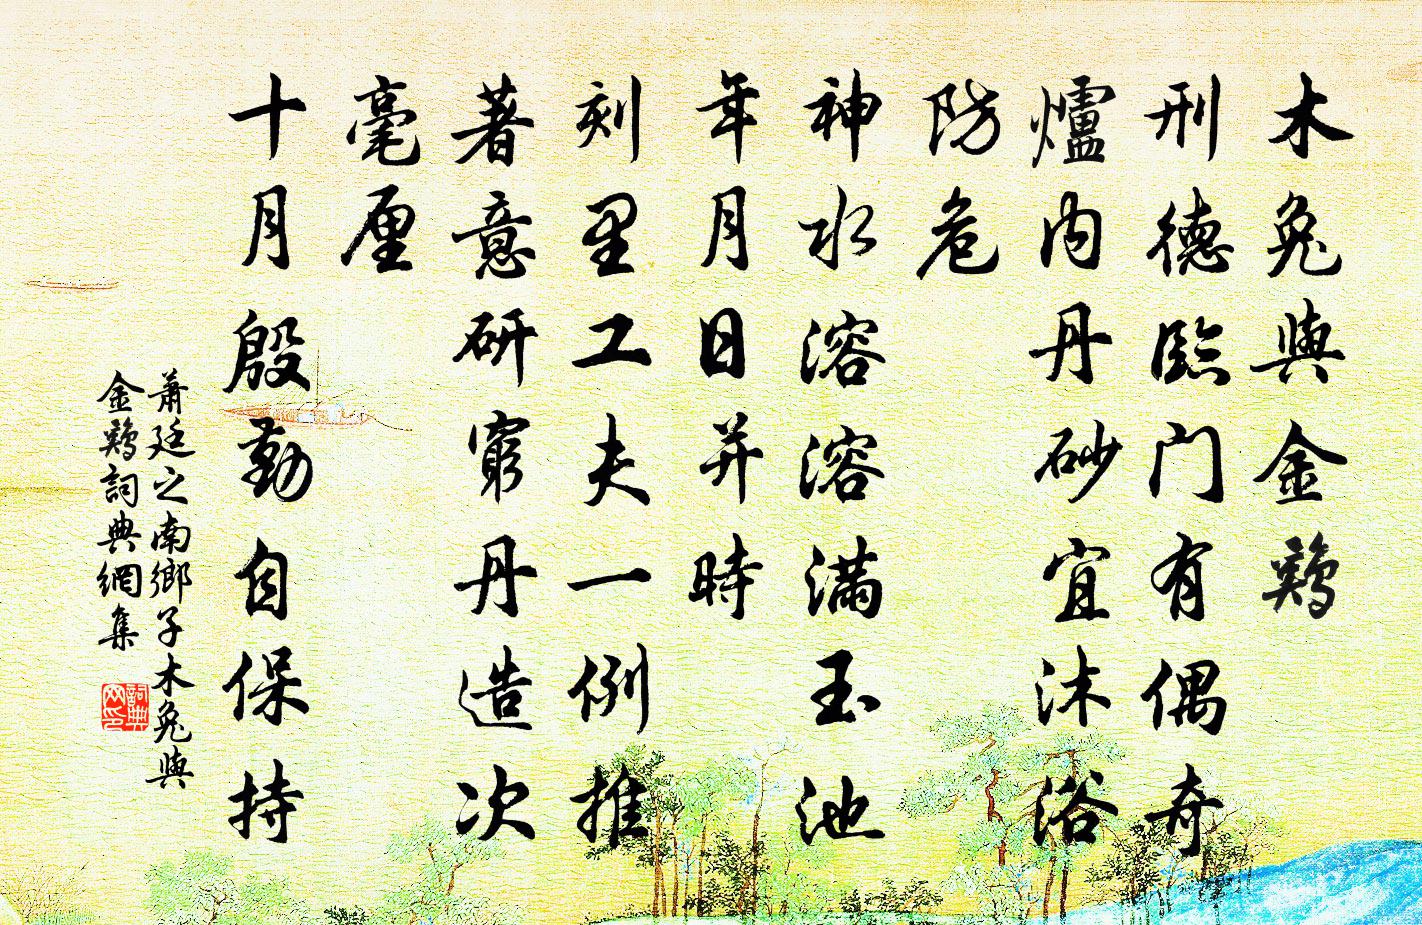 木兔與金鷄
刑德臨门有偶奇
爐内丹砂宜沐浴
防危
神水溶溶滿玉池
年月日并時
刻里工夫一例推
著意研窮丹造次
毫厘
十月殷勤自保持
蕭廷之南鄉子木兔與
金鷄詞典網集
詞典
网印